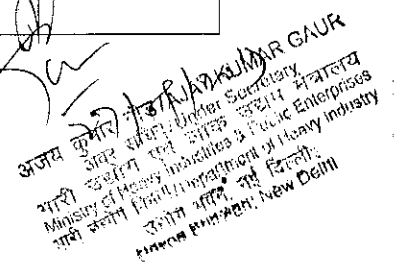 अजय कुमार गौड़/AJAY KUMAR GAUR
अवर सचिव/Under Secretary
भारी उद्योग एवं लोक उद्यम मंत्रालय
Ministry of Heavy Industries & Public Enterprises
भारी उद्योग विभाग/Department of Heavy Industry
उद्योग भवन, नई दिल्ली
New Delhi